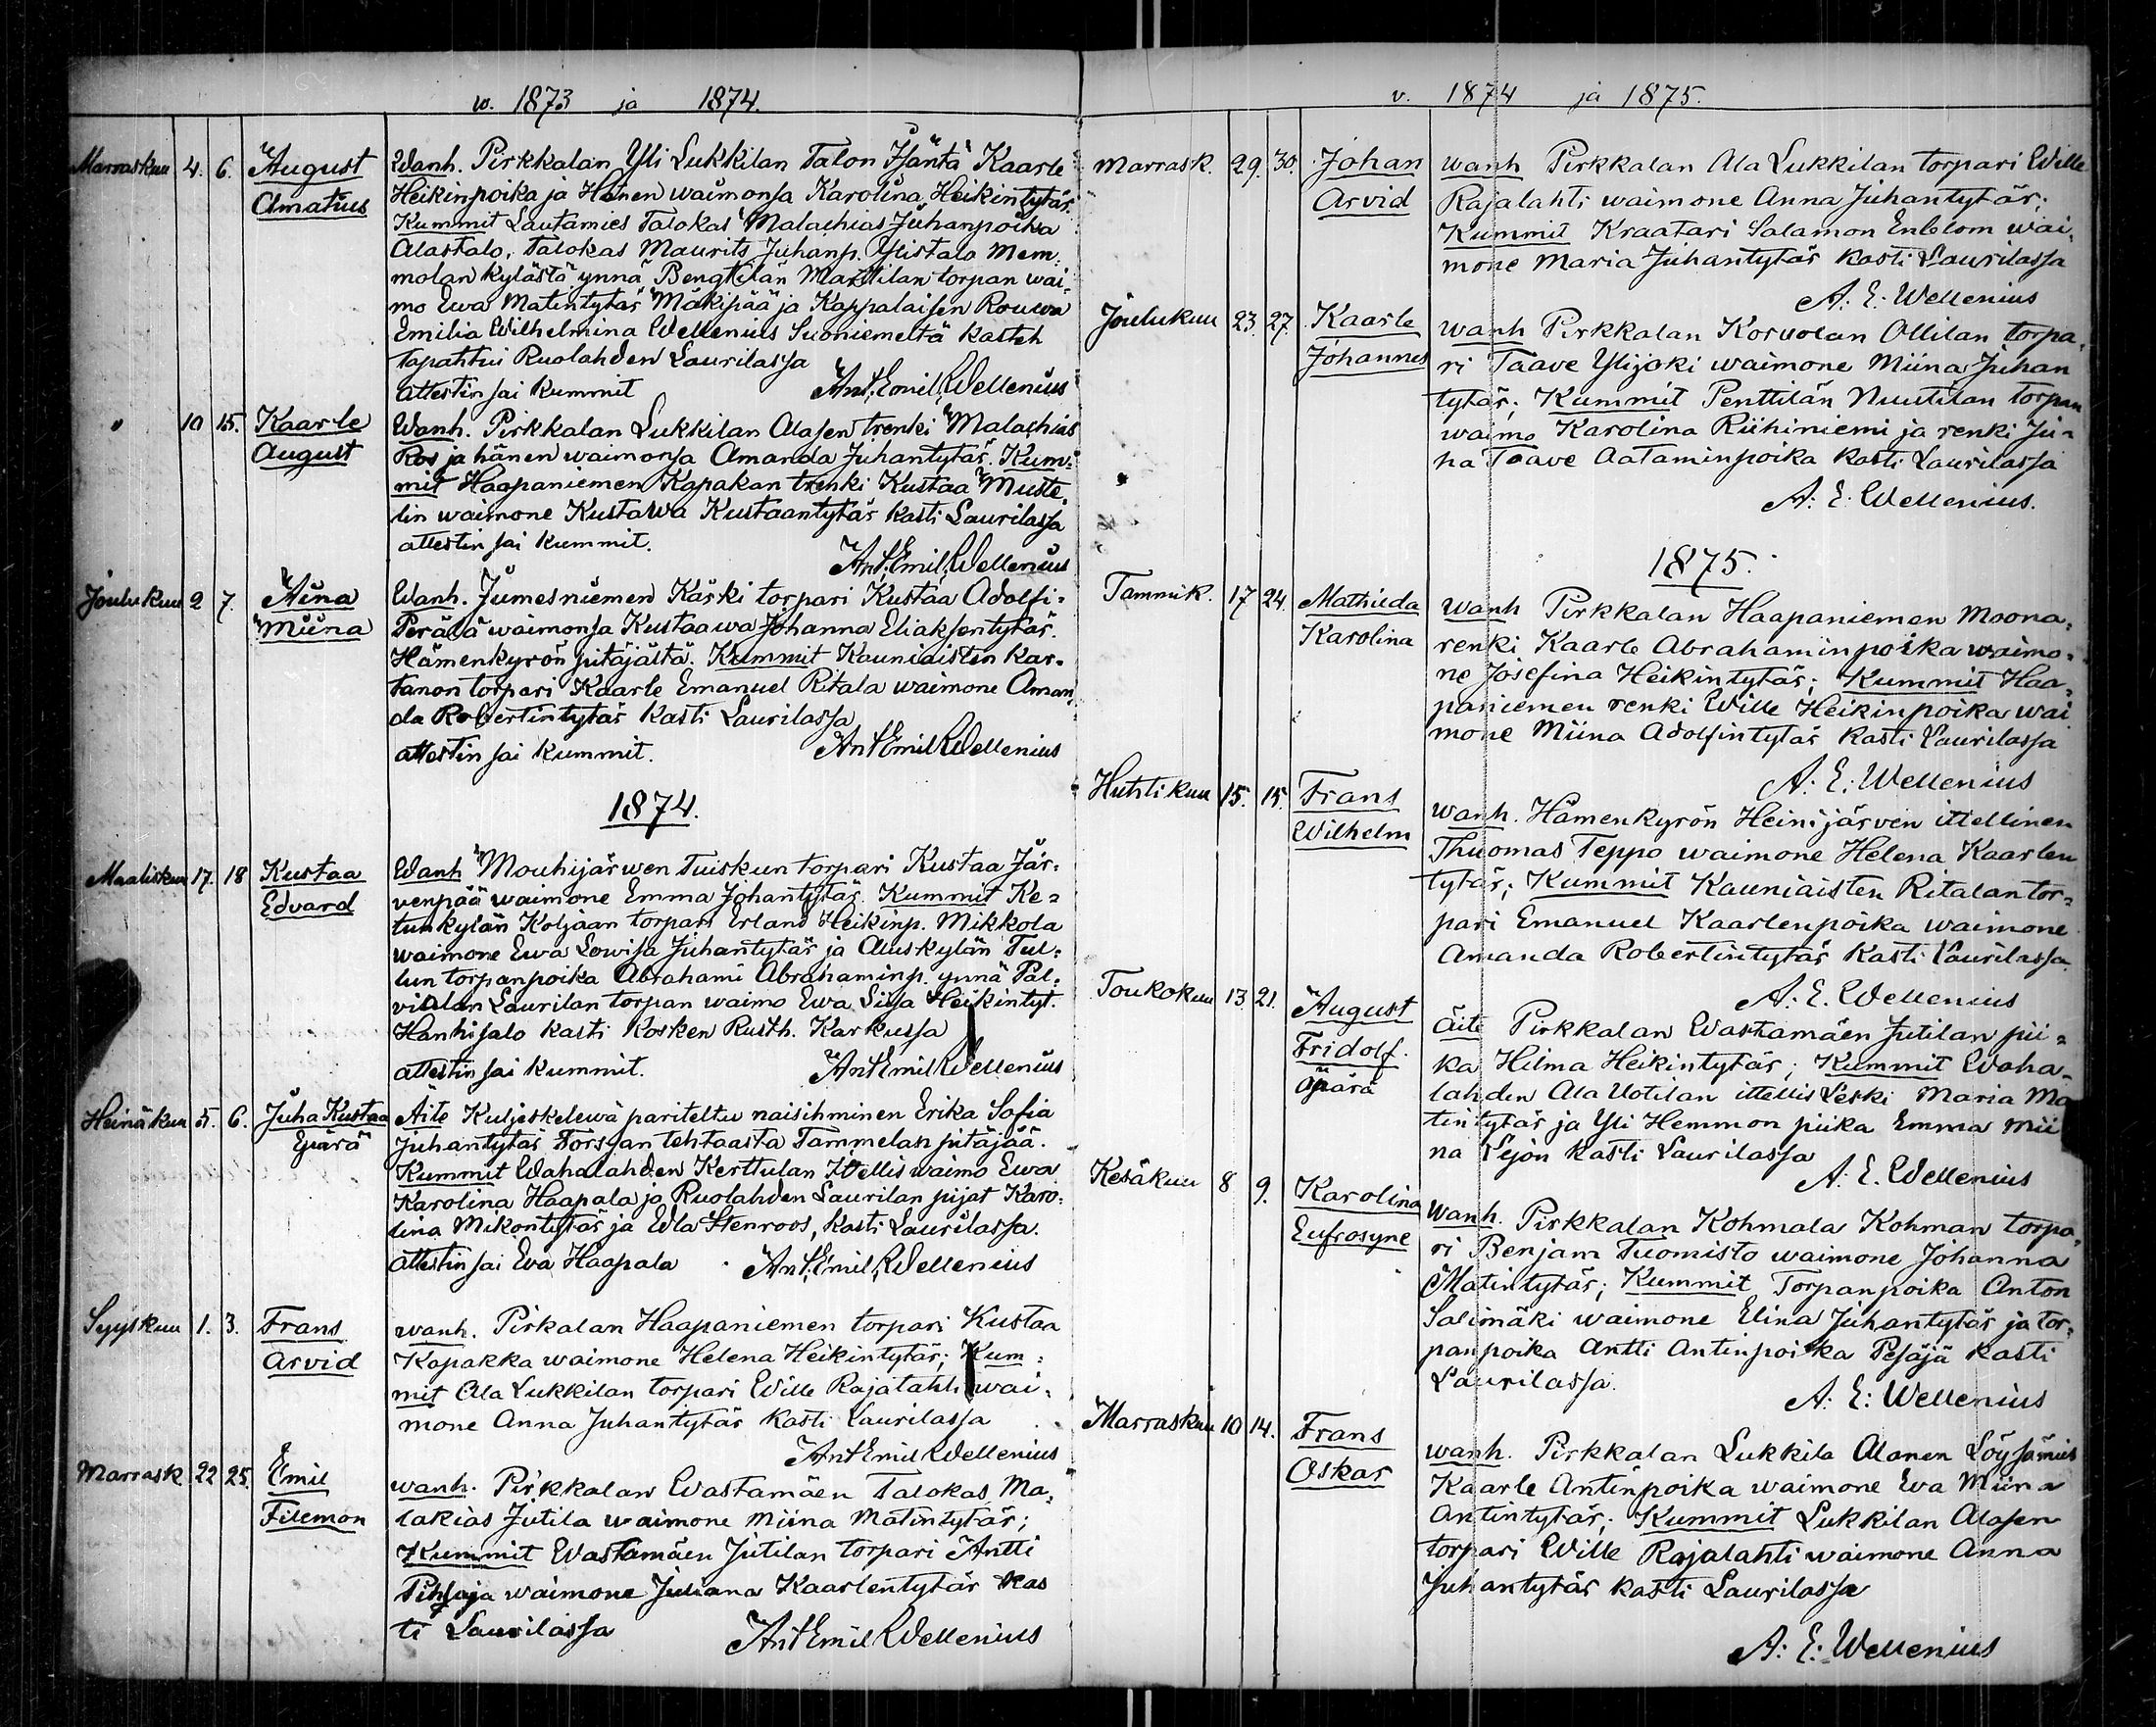 w. 1873 ja 1874.
Marraskuu 4. 6. August Wanh. Pirkkalan Yli Lukkilan Talon Isäntä Kaarle
Amatius Heikinpoika ja Hänen waimonsa Karolina Heikintytär.
Kummit Lautamies Talokas Malachias Juhanpoika
Alastalo, Talokas Maurits Juhanp. Ylistalo Mem-
molan kylästä ynnä Bengtilän Marttilan torpan wai-
mo Ewa Matintytär Mäkipää ja Kappalaisen Rouwa
Emilia Wilhelmina Wellenius Suoniemeltä kasteh
tapahtui Ruolahden Laurilassa
attestin sai kummit Ant. Emil Wellenius
" 10 15. Kaarle Wanh. Pirkkalan Lukkilan Alasen trenki Malachias
August Ros ja hänen waimonsa Amanda Juhantytär. Kum-
mit Haapaniemen Kapakan trenki Kustaa Muste-
lin waimone Kustawa Kustaantytär kasti Laurilassa
attestin sai kummit.
Ant. Emil Wellenius
Joulukuu 2 7. Aina Wanh. Jumesniemen Käski torpari Kustaa Adolfi-
Miina Perälä waimonsa Kustaawa Johanna Eliaksentytär.
Hämenkyrön pitäjältä. Kummit Kauniaisten kar-
tanon torpari Kaarle Emanuel Ritala waimone Aman-
da Robertintytär kasti Laurilassa
attestin sai kummit. Ant Emil Wellenius
1874.
Maaliskuu 17. 18 Kustaa Wanh Mouhijärwen Tuiskun torpari Kustaa Jär-
Edvard venpää waimone Emma Johantytär. Kummit Ke-
tunkylän Koljaan torpari Erland Heikinp. Mikkola
waimone Ewa Lowisa Juhantytär ja Aluskylän Tul-
lun torpanpoika Abrahami Abrahaminp. ynnä Pal-
vialan Laurilan torpan waimo Ewa Liisa Heikintyt.
Hanhisalo kasti Kosken Rusth. Karkussa
attestin sai kummit. Ant Emil Wellenius
Heinäkuu 5. 6. Juha Kustaa Äite Kuljeskelewä pariteltu naisihminen Erika Sofia
Epärä Juhantytär Forssan tehtaasta Tammelan pitäjää.
Kummit Wahalahden Kerttulan Ittellis waimo Ewa
Karolina Haapala ja Ruolahden Laurilan pijat Karo-
lina Mikontytär ja Edla Stenroos, kasti Laurilassa.
attestin sai Eva Haapala Ant. Emil Wellenius
Syyskuu 1. 3. Frans wanh. Pirkalan Haapaniemen torpari Kustaa
Arvid Kapakka waimone Helena Heikintytär; Kum-
mit Ala Lukkilan torpari Wille Rajalahti wai-
mone Anna Juhantytär kasti Laurilassa
Ant Emil Wellenius
Marrask 22 25. Emil wanh. Pirkkalan Wastamäen Talokas Ma-
Filemon lakias Jutila waimone Miina Matintytär;
Kummit Wastamäen Jutilan torpari Antti
Pihlaja waimone Juliana Kaarlentytär kas
ti Laurilassa Ant Emil Wellenius
v. 1874 ja 1875.
Marrask. 29. 30. Johan wanh Pirkkalan Ala Lukkilan torpari Wille
Arvid Rajalahti waimone Anna Juhantytär;
Kummit Kraatari Salamon Enblom wai-
mone Maria Juhantytär kasti Laurilassa
A: E: Wellenius
Joulukuu 23. 27. Kaarle wanh Pirkkalan Korvolan Ollilan torpa-
Johannes ri Taave Ylijoki waimone Miina Juhan
tytär; Kummit Penttilän Nuutilan torpan
waimo Karolina Riihiniemi ja renki Ju-
ha Taave Aataminpoika kasti Laurilassa
A: E: Wellenius.
1875.
Tammik. 17 24. Mathilda wanh Pirkkalan Haapaniemen Moona-
Karolina renki Kaarle Abrahaminpoika waimo-
ne Josefina Heikintytär; Kummit Haa-
paniemen renki Wille Heikinpoika wai
mone Miina Adolfintytär kasti Laurilassa
A: E: Wellenius
Huhtikuu 15. 15. Frans wanh. Hämenkyrön Heinijärven ittellinen
Wilhelm Thuomas Teppo waimone Helena Kaarlen
tytär; Kummit Kauniaisten Ritalan tor-
pari Emanuel Kaarlenpoika waimone
Amanda Robertintytär kasti Laurilassa.
A: E. Wellenius
Toukokuu 13 21. August äite Pirkkalan Wastamäen Jutilan pii-
Fridolf. ka Hilma Heikintytär; Kummit Waha-
äpärä lahden Ala Uotilan ittellis Leski Maria Ma
tintytär ja Yli Hemmon piika Emma Mii
na Lejon kasti Laurilassa
A. E. Wellenius
Kesäkuu 8 9. Karolina wanh. Pirkkalan Kohmala Kohman torpa-
Eufrosyne ri Benjam Tuomisto waimone Johanna
Matintytär; Kummit Torpanpoika Anton
Salimäki waimone Elina Juhantytär ja tor-
panpoika Antti Antinpoika Pesäjä kasti
Laurilassa. A: E: Wellenius
Marraskuu 10 14. Frans wanh. Pirkkalan Lukkila Alanen Löysämies
Oskar Kaarle Antinpoika waimone Eva Miina
Antintytär; Kummit Lukkilan Alasen
torpari Wille Rajalahti waimone Anna
Juhantytär kasti Laurilassa
A: E: Wellenius